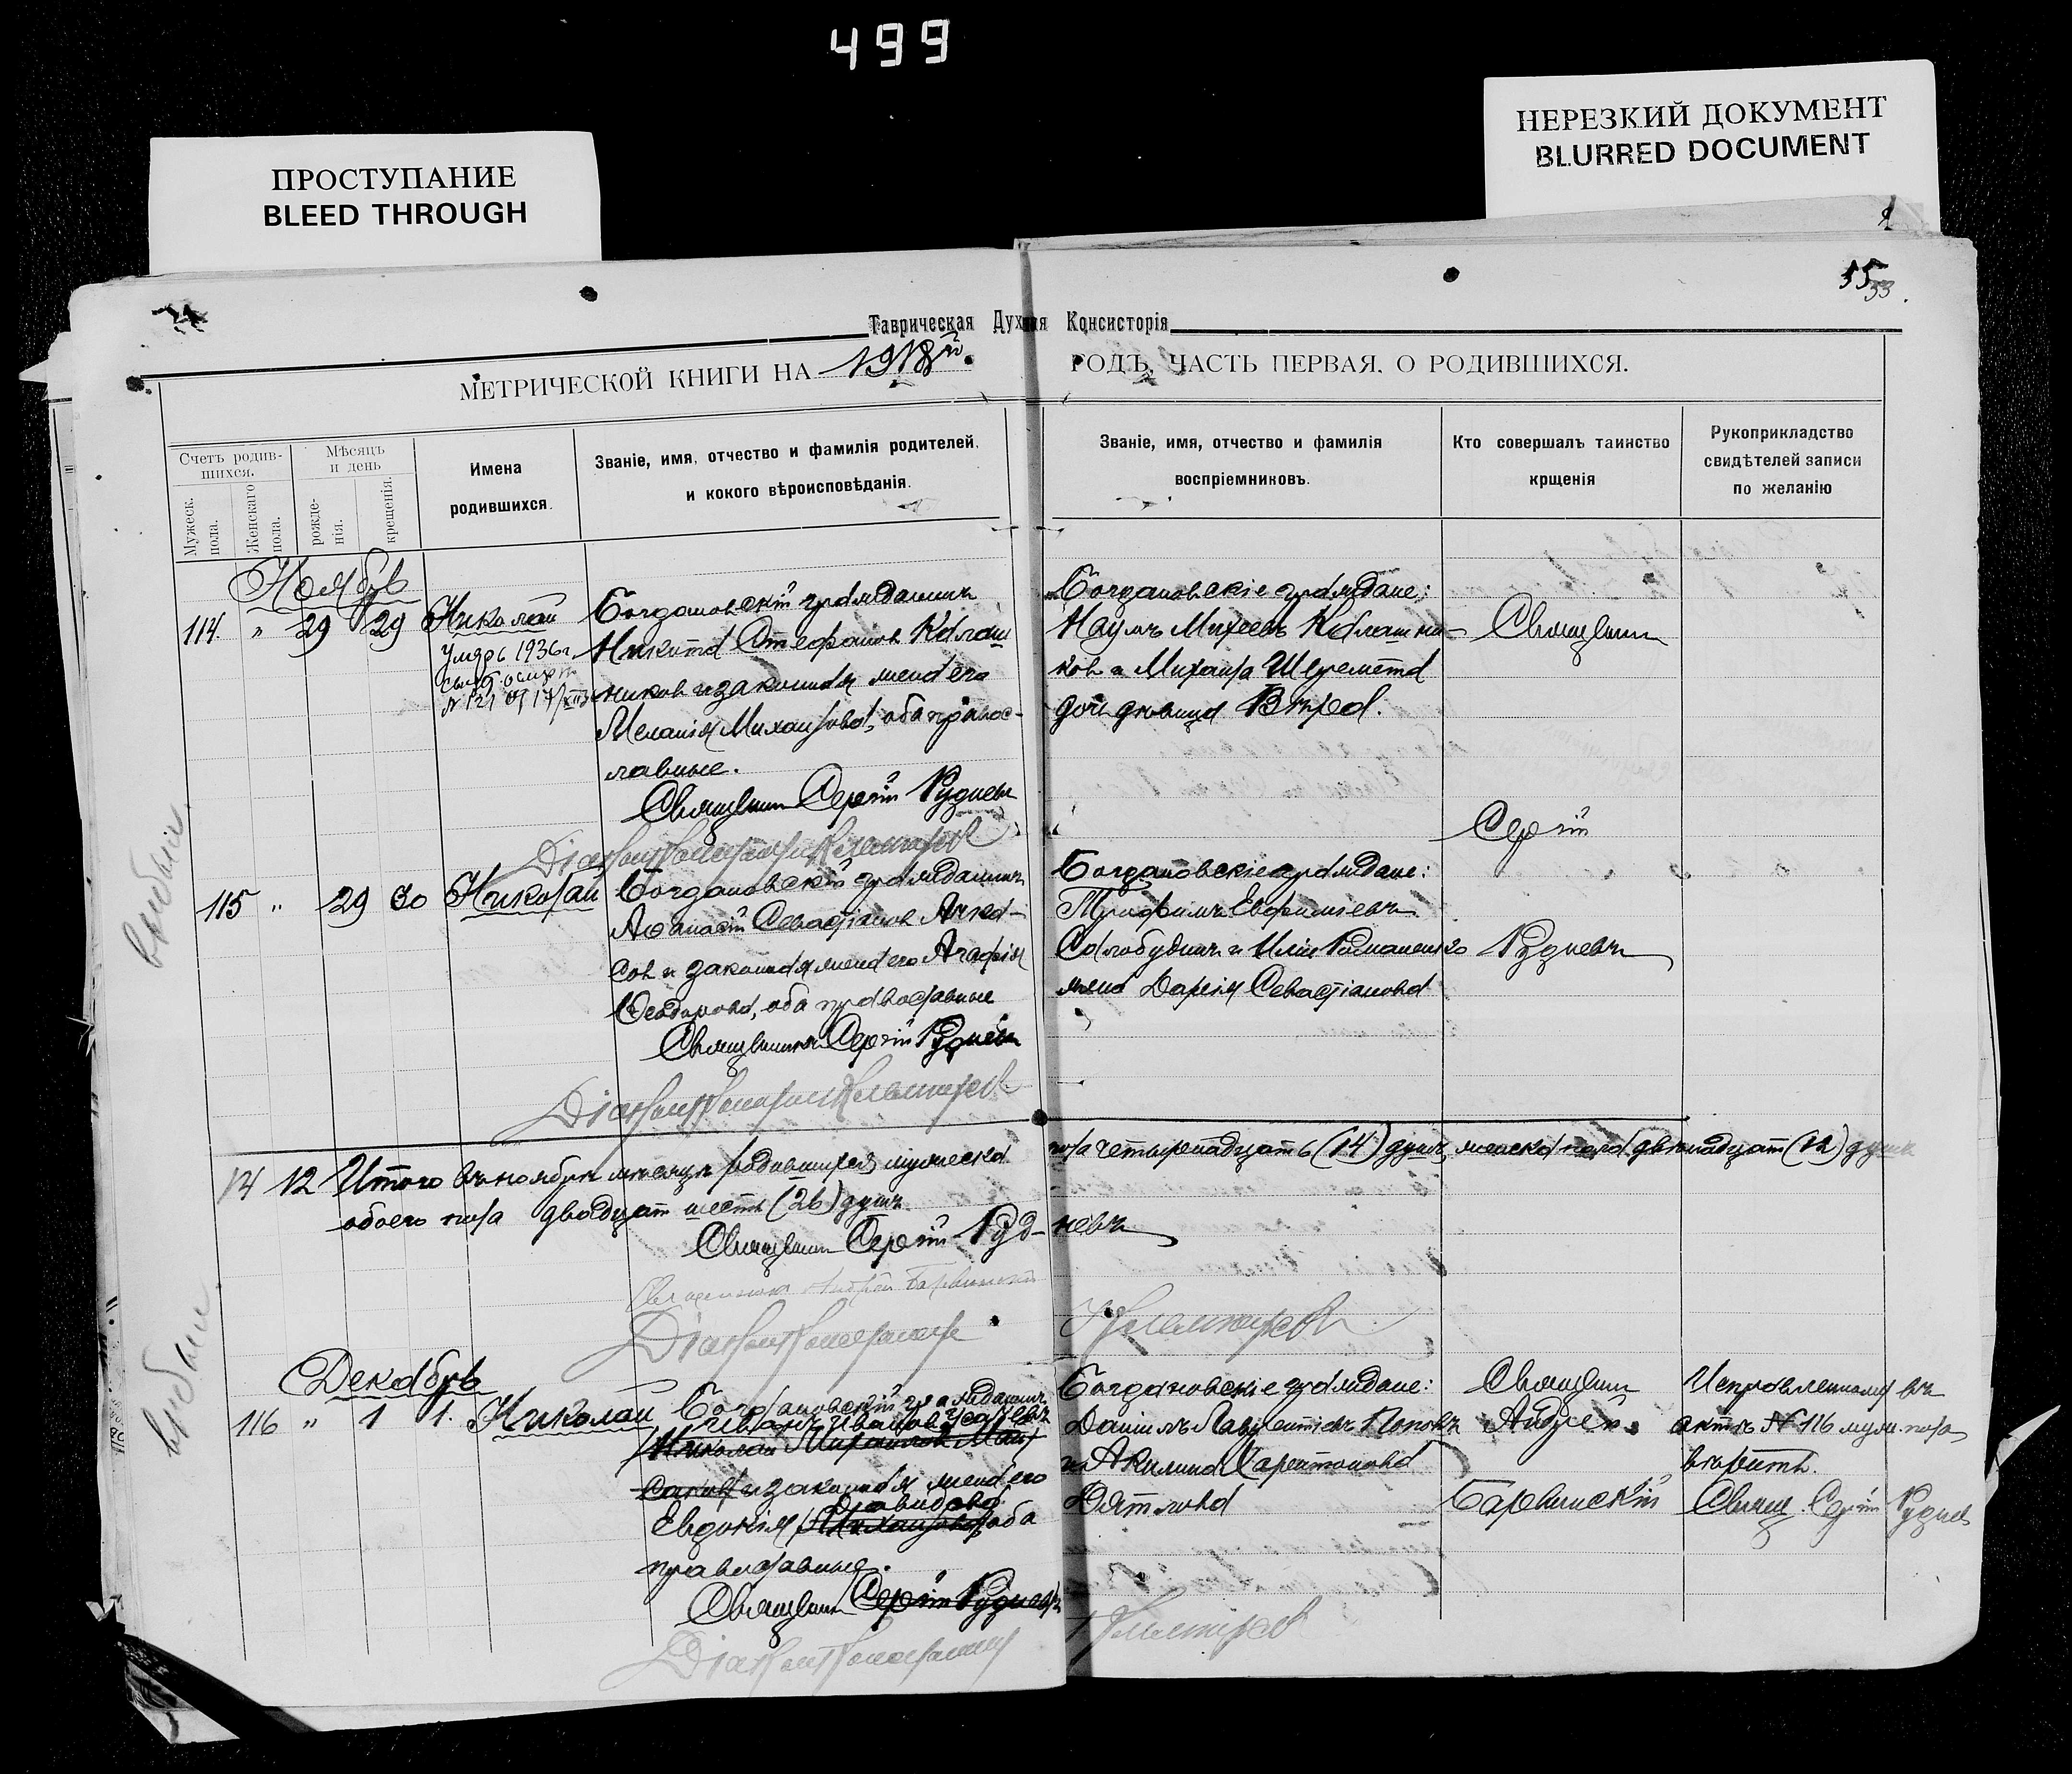 499
ПРОСТУПАНИЕ
BLEED THROUGH
НЕРЕЗКИЙ ДОКУМЕНТ
BLURRED DOCUMENT
55
53.
Таврическая Духная Консисторія
МЕТРИЧЕСКОЙ КНИГИ НА 1918й. ГОДЪ, ЧАСТЬ ПЕРВАЯ, О РОДИВШИХСЯ.
Счетъ родив-
шихся.
Мужеск.
пола.
Женскаго
пола.
Мѣсяцъ
и день
рожде-
нія.
крещенія.
Имена
родившихся.
Званіе, имя, отчество и фамилія родителей,
и кокого вѣроисповѣданія.
Званіе, имя, отчество и фамилія
воспріемниковъ.
Кто совершалъ таинство
крщенія
Рукоприкладство
свидѣтелей записи
по желанію
Ноябрь
114. " 29 29 Николай
Умяръ 1936г.
N 121 от 17/XII
Богдановскій гражданинъ
Никита Стефановъ Калаш
никовъ и законная жена его
Меланія Михаилова, оба правос-
лавные.
Священникъ Сергій Рудневъ
Богдановскіе граждане:
Наумъ Михеевъ Калашни-
ковъ и Михаила Шеремета
дочь дѣвица Вѣра.
Священникъ
Сергій
Рудневъ
115 " 29 30 Николай
Богдановскій гражданинъ
Аѳанасій Севастіановъ
совъ и законная жена его Агафія
Ѳеодорова, оба православные
Священникъ Сергій Рудневъ
Богдановскіе граждане:
Трифимъ Евфиміевъ
и Иліи Романенко
жена Дарія Севастіанова
14 12 Итого въ ноябрѣ мѣсяцѣ родившихся мужеска пола четырнадцать (14) душъ, женска пола двѣнадцать (12) душъ
обоего пола двадцать шесть (26) душъ
Священникъ Сергій Рудневъ
Священникъ Андрей Барвинскій
Декабрь
116 " 1 1. Николай
Богдановскій гражданинъ
Иванъ Ивановъ
Николай Михаиловъ
и законная жена его
Давидова
Евдокія Михаилова оба
православные.
Священникъ Сергій Рудневъ
Богдановскіе граждане:
Даніилъ Лаврентіевъ Поповъ
и Акилина Харитонова
Дятлова
Священникъ
Андрей
Барвинскій
Исправленному въ
актѣ № 116 муж. пола
вѣрить.
Свящ. Сергій Рудневъ